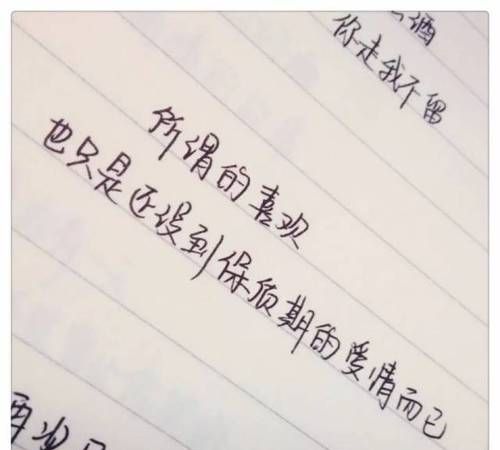 酒
你走我不留
所谓的喜欢
也只是还没到保质期的爱情而已